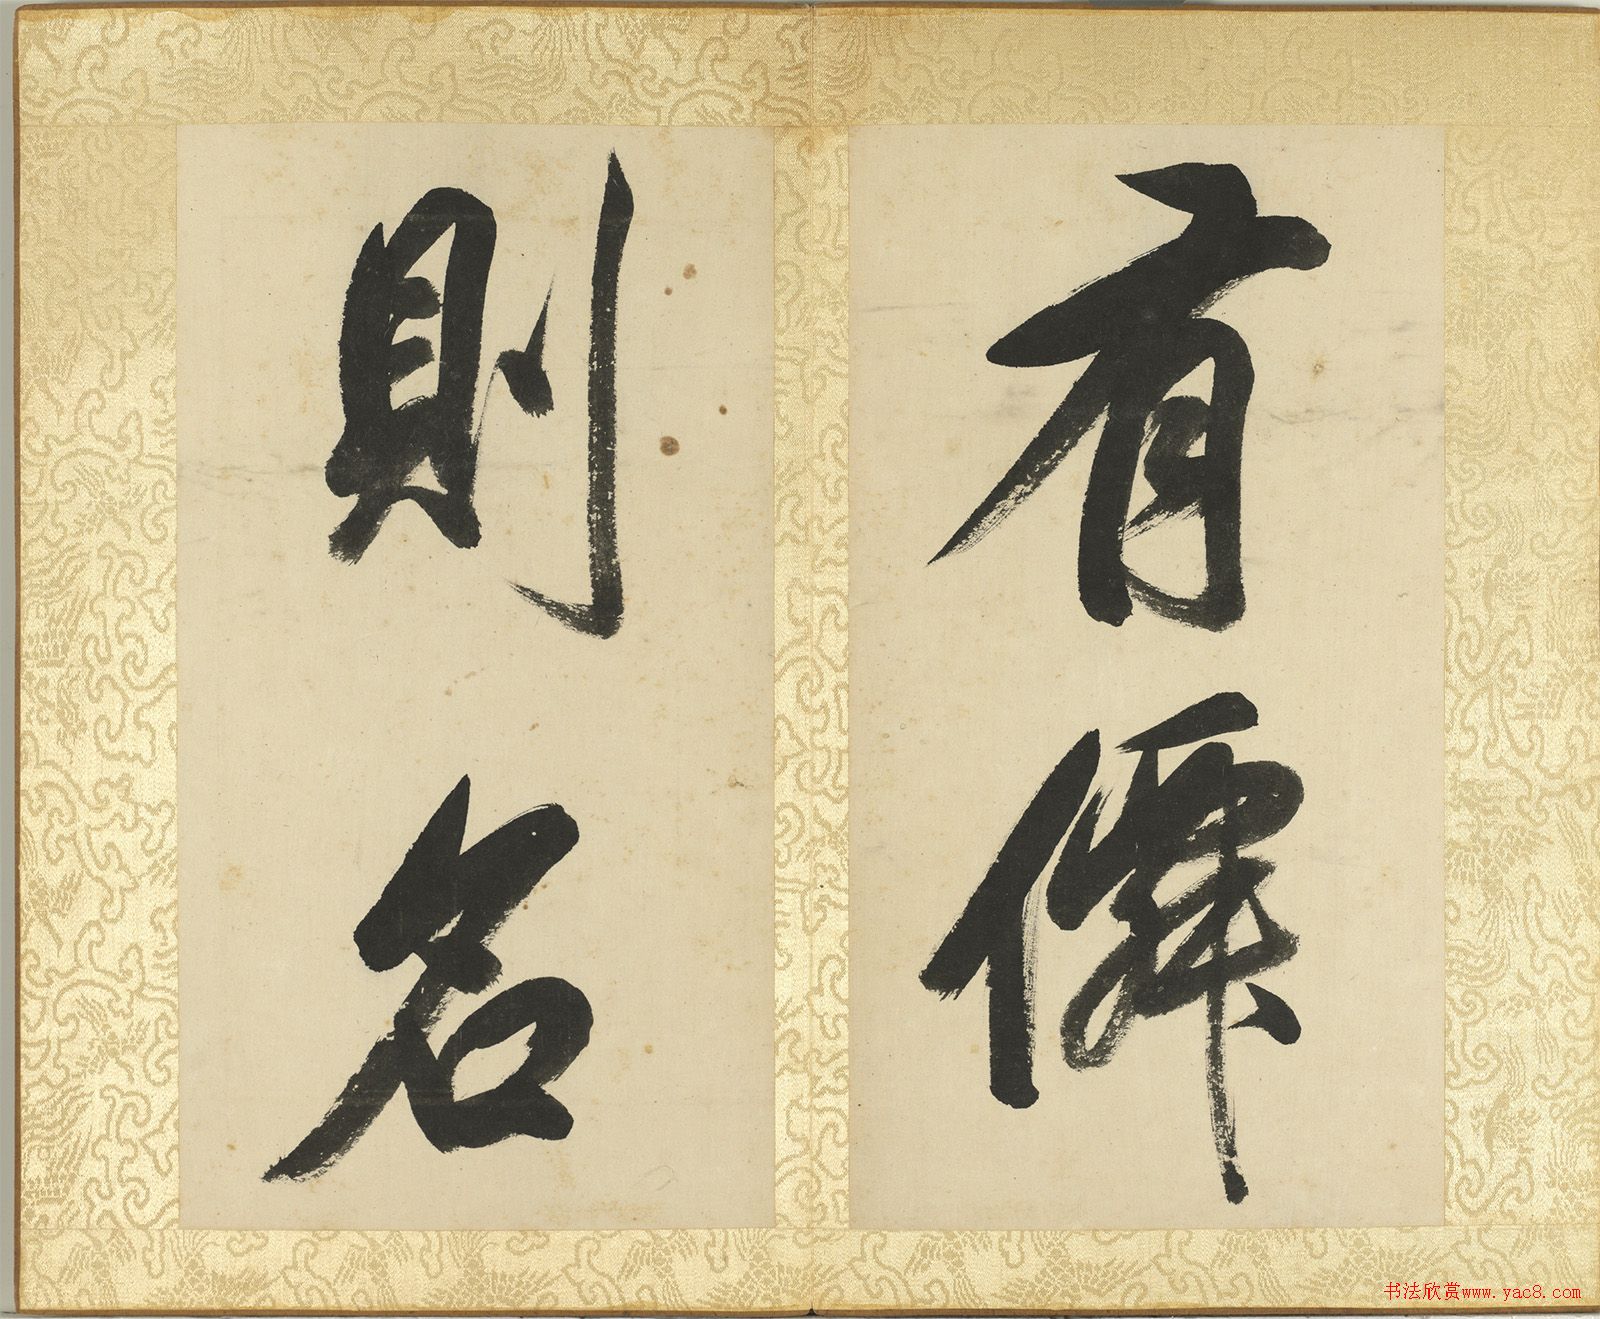 有僊
則名
书法欣赏www.yac8.com